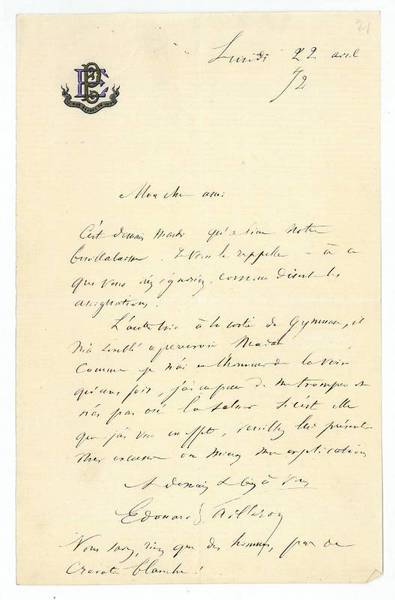 Lundi 22 avril
/72
Mon cher ami
C'est demain mardi qu'a lieu notre
Je vous le rappelle - à ce
que vous n'en ignoriez, comme disent les
assignations.
L'autre soir à la sortie du Gymnase, il
m'a semblé apercevoir Madame
Comme je n'ai eu l'honneur de la voir
qu'une fois, j'ai eu peur de me tromper et
n'ai pas osé la saluer. Si c'est elle
que j'ai vue en effet, veuillez lui présenter
mes excuses ou mieux mon explication
A demain et bien à vous
Edouard Pailleron
Nous serons rien que des hommes, pas de
cravate blanche!